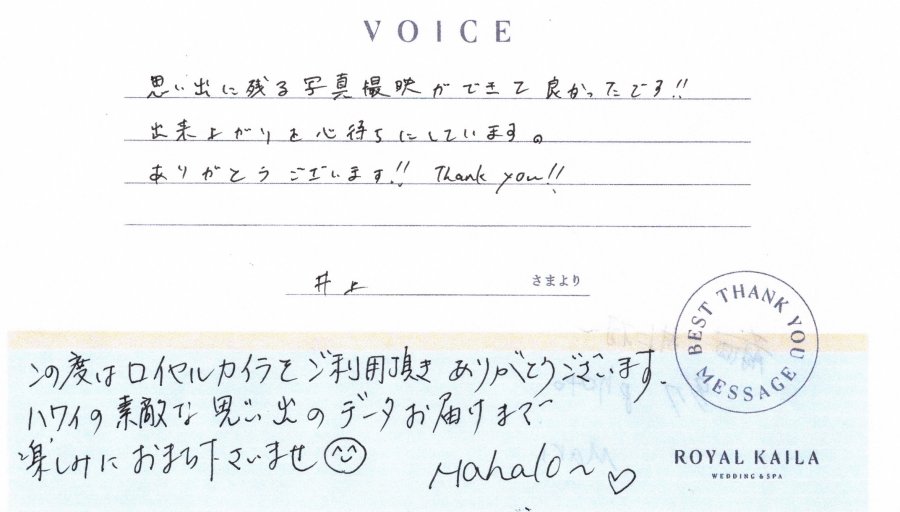 VOICE
思い出に残る写真撮映ができて良かったです!!
出来上がりを心待ちにしています。
ありがとうございます!! Thank you!!
井上 さまより
BEST THANK YOU MESSAGE
この度はロイヤルカイラをご利用頂きありがとうございます。
ハワイの素敵な思い出のデータお届けまで
楽しみにおまち下さいませ
Mahalo~♡
ROYAL KAILA
WEDDING & SPA